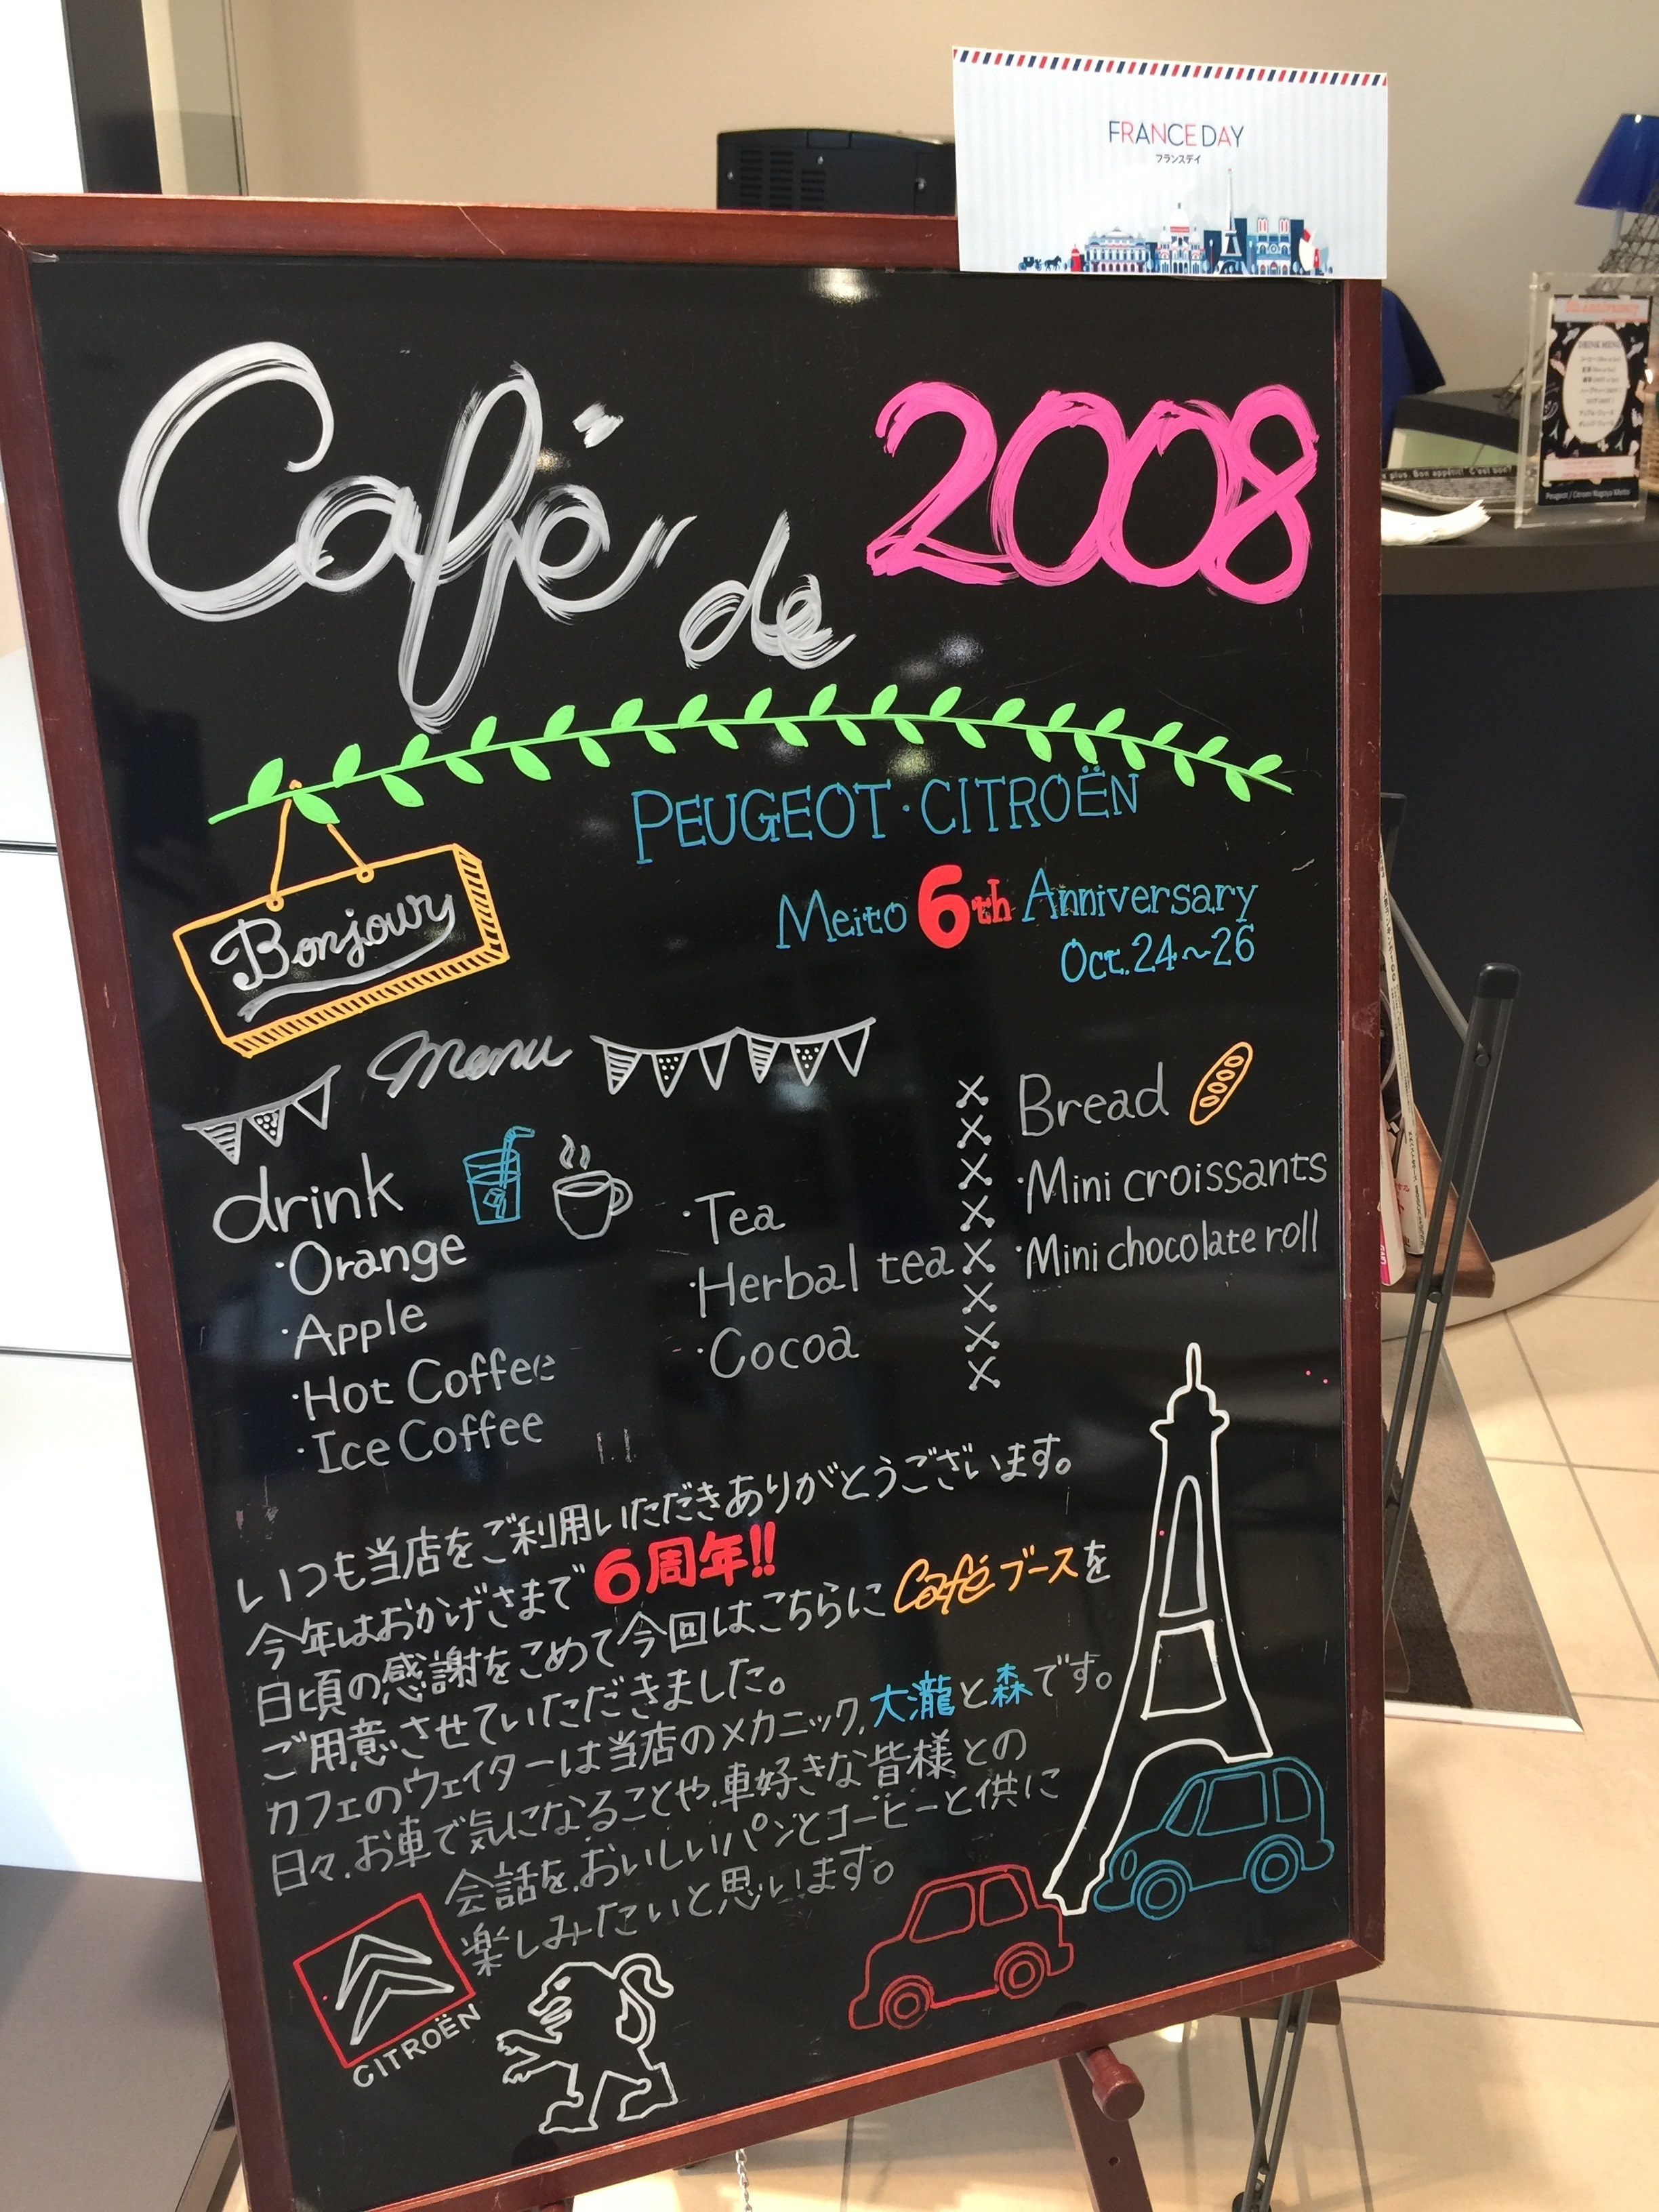 FRANCE DAY
フランスデイ
Café de 2008
PEUGEOT・CITROËN
Meito 6th Anniversary
Oct. 24~26
Bonjour
menu
drink
・Orange
・Apple
・Hot Coffee
・Ice Coffee
・Tea
・Herbal tea
・Cocoa
Bread
・Mini croissants
・Mini chocolate roll
いつも当店をご利用いただきありがとうございます。
今年はおかげさまで 6周年!!
日頃の感謝をこめて今回はこちらにCaféブースを
ご用意させていただきました。
カフェのウェイターは当店のメカニック、大瀧と森です。
日々、お車で気になることや、車好きな皆様との
会話を、おいしいパンとコーヒーと供に
楽しみたいと思います。
CITROËN
DRINK MENU
Peugeot / Citroen Nagoya Meito
plus. Bon appétit! C'est bon?